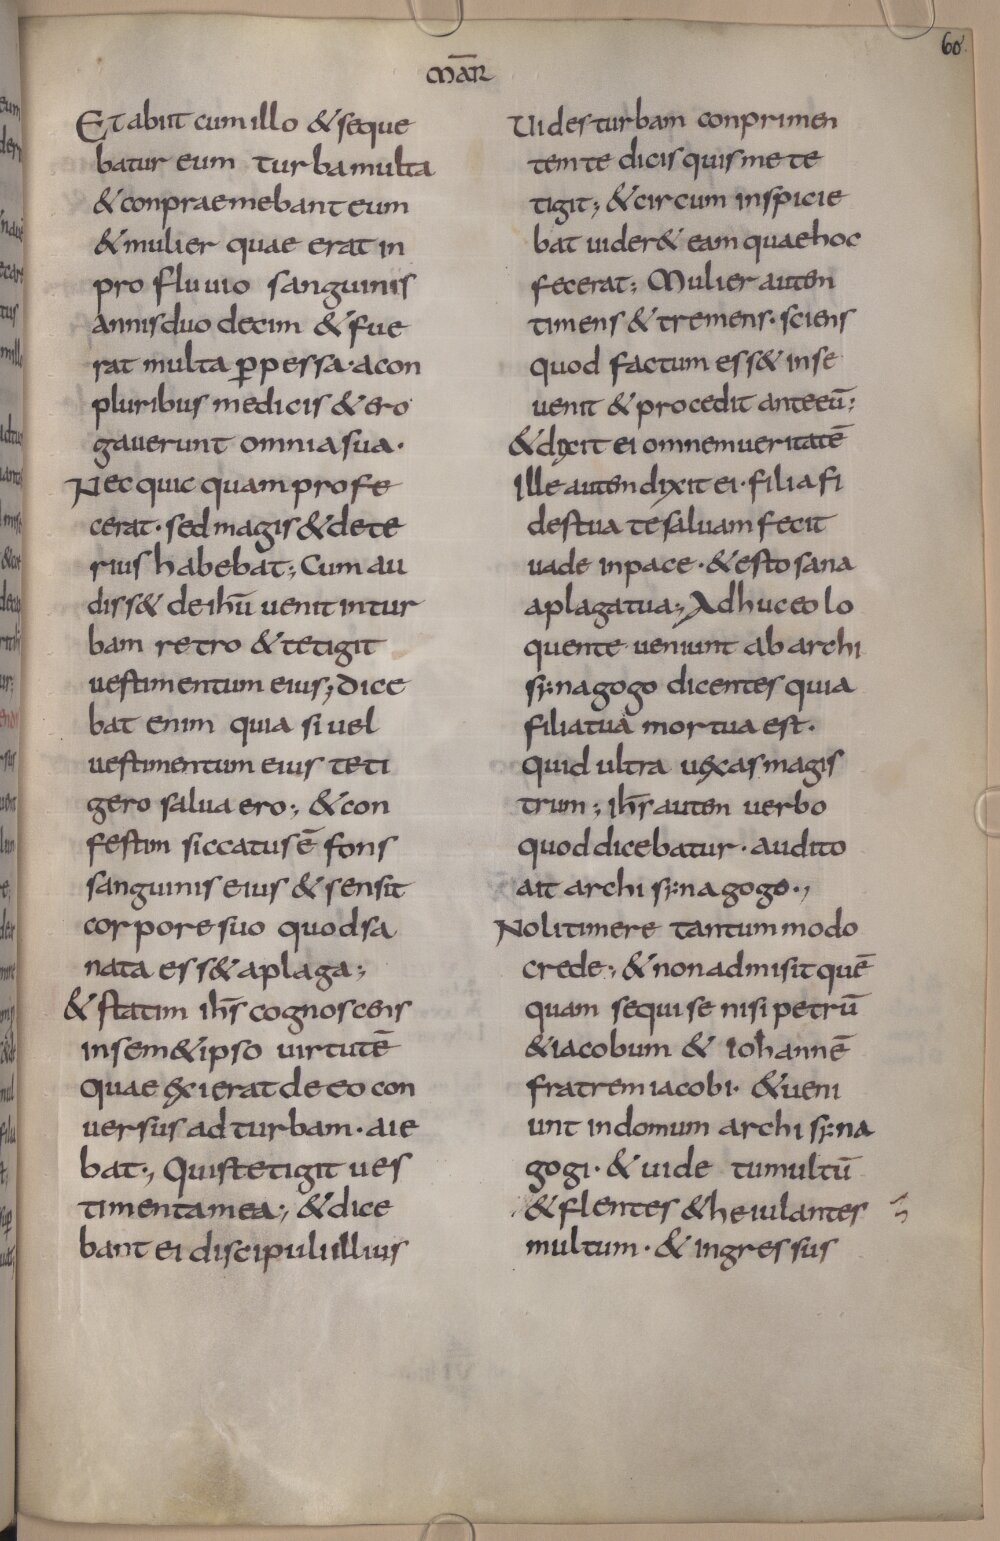 60
MAR̄
Et abiit cum illo & seque
batur eum turba multa
& conpraemebant eum
& mulier quae erat in
profluuio sanguinis
annis duodecim & fue
rat multa ꝑpessa · a con
pluribus medicis & ero
gauerunt omnia sua ·
Nec quicquam profe
cerat · sed magis & dete
rius habebat ; Cum au
diss& de ihū uenit in tur
bam retro & tetigit
uestimentum eius ; dice
bat enim quia si uel
uestimentum eius teti
gero salua ero ; & con
festim siccatus ē fons
sanguinis eius & sensit
corpore suo quod sa
nata ess& a plaga ;
& statim ihs̄ cognoscens
in sem&ipso uirtutē
quae exierat de eo con
uersus ad turbam · aie
bat ; Quis tetigit ues
timenta mea ; & dice
bant ei discipuli illius
Uides turbam conprimen
tem te dicis quis me te
tigit ; & circum inspicie
bat uider& eam quae hoc
fecerat ; Mulier autem
timens & tremens · sciens
quod factum ess& in se
uenit & procedit ante eū ;
& dixit ei omnem ueritatē
Ille autem dixit ei · filia fi
des tua te saluam fecit
uade in pace · & esto sana
a plaga tua ; Adhuc eo lo
quente ueniunt ab archi
synagogo dicentes quia
filia tua mortua est ·
quid ultra uexas magis
trum ; ihs̄ autem uerbo
quod dicebatur · audito
ait archisynagogo ·,
Noli timere tantum modo
crede ; & non admisit quē
quam sequi se nisi petrū
& iacobum & iohannē
fratrem iacobi · & ueni
unt in domum archisyna
gogi · & uide tumultū
& flentes & heiulantes
multum · & ingressus